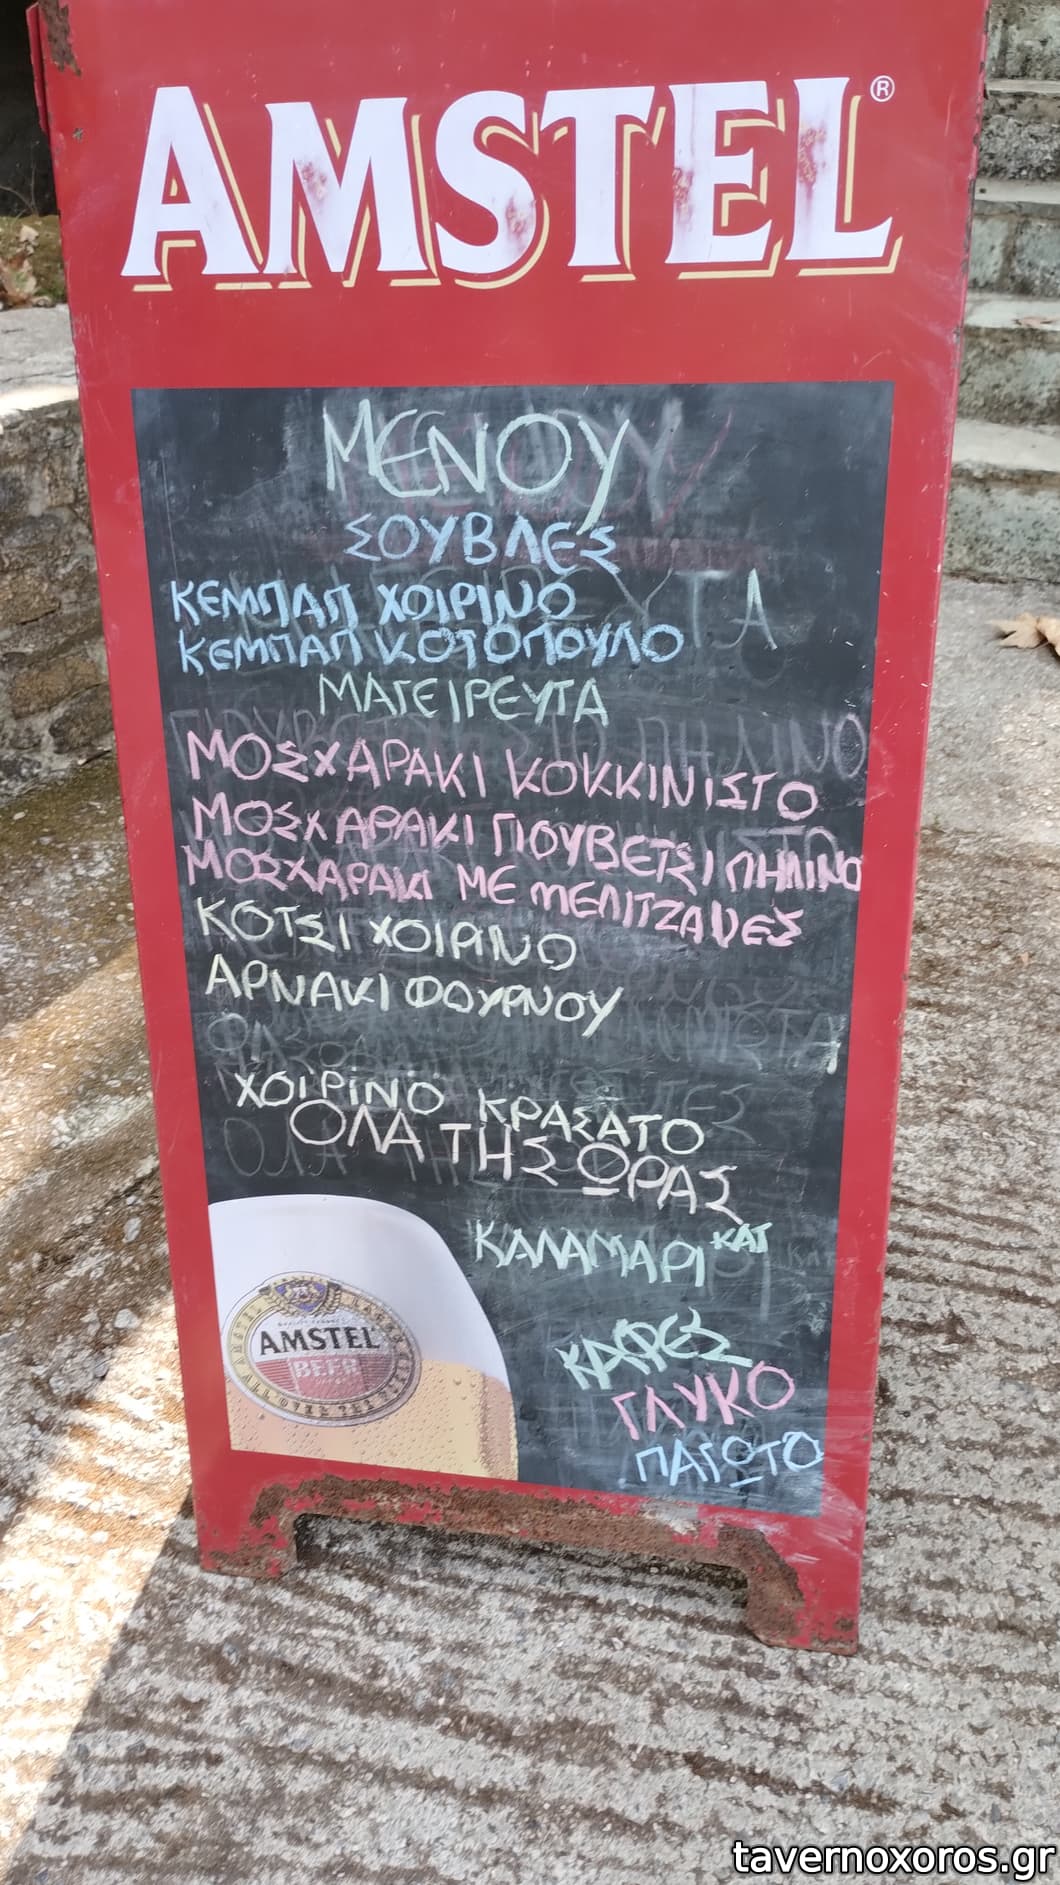 AMSTEL®
ΜΕΝΟΥ
ΣΟΥΒΛΕΣ
ΚΕΜΠΑΠ ΧΟΙΡΙΝΟ
ΚΕΜΠΑΠ ΚΟΤΟΠΟΥΛΟ
ΜΑΓΕΙΡΕΥΤΑ
ΜΟΣΧΑΡΑΚΙ ΚΟΚΚΙΝΙΣΤΟ
ΜΟΣΧΑΡΑΚΙ ΓΙΟΥΒΕΤΣΙ ΠΗΛΙΝΟ
ΜΟΣΧΑΡΑΚΙ ΜΕ ΜΕΛΙΤΖΑΝΕΣ
ΚΟΤΣΙ ΧΟΙΡΙΝΟ
ΑΡΝΑΚΙ ΦΟΥΡΝΟΥ
ΧΟΙΡΙΝΟ ΚΡΑΣΑΤΟ
ΟΛΑ ΤΗΣ ΩΡΑΣ
ΚΑΛΑΜΑΡΙ ΚΑΤ
ΚΑΦΕΣ
ΓΛΥΚΟ
ΠΑΓΩΤΟ
AMSTEL
BEER
tavernoxoros.gr